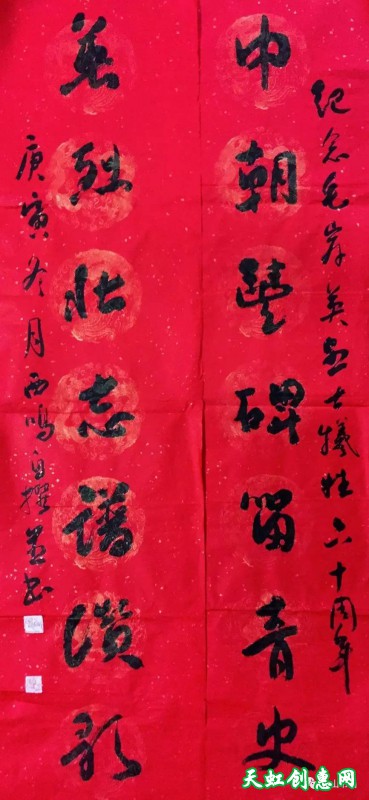 纪念毛岸英烈士牺牲六十周年
中朝丰碑留青史
英烈壮志谱讚歌
庚寅冬月西鸣自撰并书
天虹创惠网